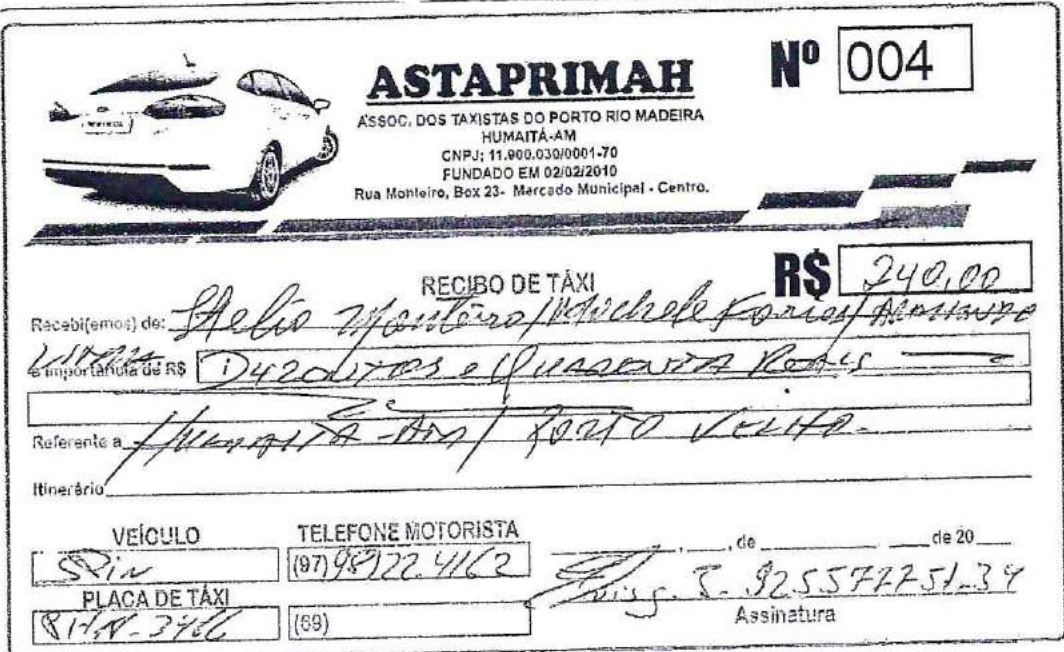 ASTAPRIMAH
Nº 004
ASSOC. DOS TAXISTAS DO PORTO RIO MADEIRA
HUMAITÁ-AM
CNPJ; 11.900.030/0001-70
FUNDADO EM 02/02/2010
Rua Monteiro, Box 23- Mercado Municipal - Centro.
RECIBO DE TÁXI
R$ 240,00
Recebi(emos) de: Stelio Monteiro/Michele Farias/
a importância de R$ Duzentos e Quarenta Reais
Referente a Humaitá-AM/ Porto Velho.
Itinerário
VEÍCULO TELEFONE MOTORISTA
Spin (97) 98122.4162 , de de 20
PLACA DE TÁXI
(69) Assinatura